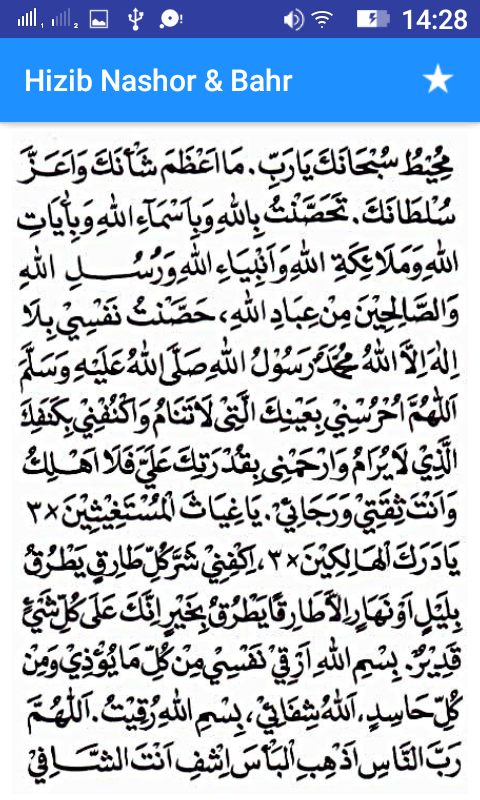 14:28
Hizib Nashor & Bahr
مُحِيْطُ سُبْحَانَكَ يَارَبِّ. مَا اَعْظَمَ شَأْنَكَ وَاَعَزَّ
سُلْطَانَكَ. تَحَصَّنْتُ بِاللهِ وَبِاَسْمَآءِ اللهِ وَبِأٰيَاتِ
اللهِ وَمَلَائِكَةِ اللهِ وَاَنْبِيَاءِ اللهِ وَرُسُلِ اللهِ
وَالصَّالِحِيْنَ مِنْ عِبَادِ اللهِ، حَصَّنْتُ نَفْسِيْ بِلَا
اِلٰهَ اِلَّا اللهُ مُحَمَّدٌ رَسُوْلُ اللهِ صَلَّى اللهُ عَلَيْهِ وَسَلَّمَ
اَللّٰهُمَّ احْرُسْنِيْ بِعَيْنِكَ الَّتِيْ لَا تَنَامُ وَاكْنُفْنِيْ بِكَنَفِكَ
الَّذِيْ لَا يُرَامُ وَارْحَمْنِيْ بِقُدْرَتِكَ عَلَيَّ فَلَا اَهْلِكُ
وَاَنْتَ ثِقَتِيْ وَرَجَائِيْ. يَا غِيَاثَ الْمُسْتَغِيْثِيْنَ ×٣
يَا دَرَكَ الْهَالِكِيْنَ ×٣، اِكْفِنِيْ شَرَّ كُلِّ طَارِقٍ يَطْرُقُ
بِلَيْلٍ اَوْ نَهَارٍ اِلَّا طَارِقًا يَطْرُقُ بِخَيْرٍ اِنَّكَ عَلَى كُلِّ شَيْءٍ
قَدِيْرٌ. بِسْمِ اللهِ اَرْقِيْ نَفْسِيْ مِنْ كُلِّ مَا يُؤْذِيْ وَمِنْ
كُلِّ حَاسِدٍ، اَللهُ شِفَائِيْ، بِسْمِ اللهِ رُقِيْتُ. اَللّٰهُمَّ
رَبَّ النَّاسِ اَذْهِبِ الْبَأْسَ اِشْفِ اَنْتَ الشَّافِيْ